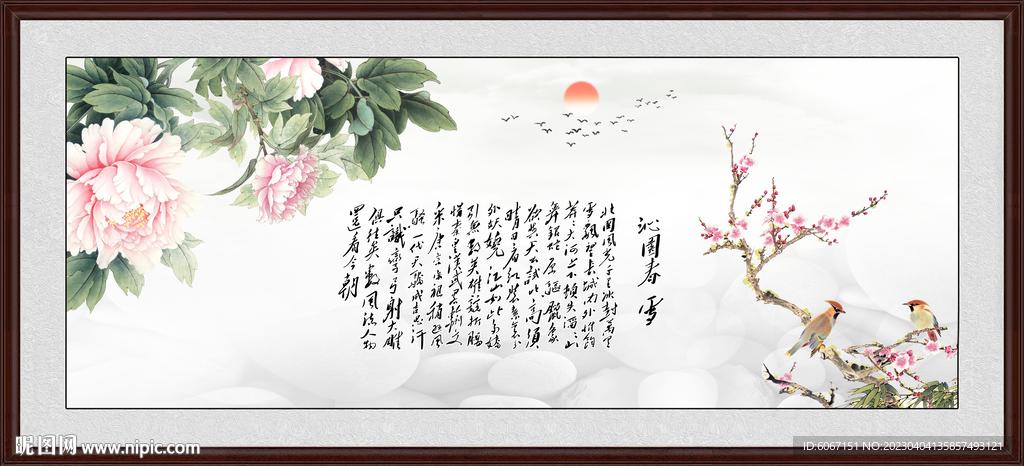 沁園春 雪
北國風光千里冰封萬里
雪飄望長城内外惟餘
莽莽大河上下頓失滔滔山
舞銀蛇原驅臘象
欲與天公試比高須
晴日看紅裝素裹分
外妖嬈江山如此多嬌
引無數英雄競折腰
惜秦皇漢武略輸文
采唐宗宋祖稍遜風
騷一代天驕成吉思汗
只識彎弓射大雕
俱往矣數風流人物
還看今朝
昵图网 www.nipic.com
ID:6067151 NO:20230404135857493121